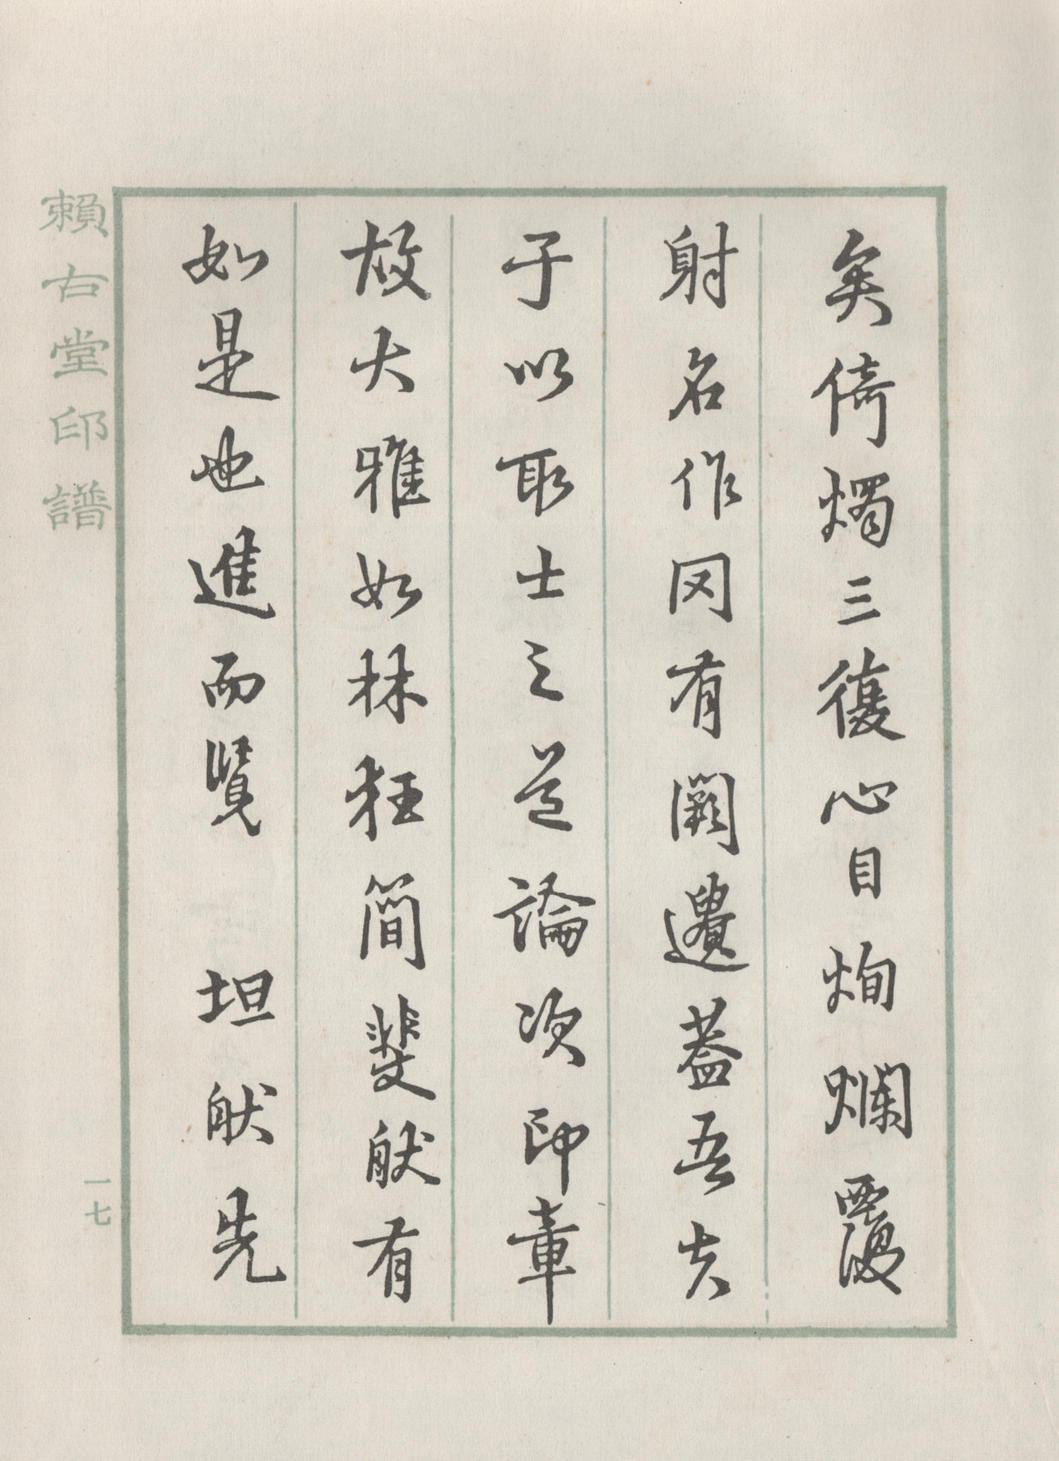 矣倚燭三復心目炯爛覆
射名作罔有闕遺蓋吾夫
子以取士之道論次印章
故大雅如林狂簡斐然有
如是也進而覽 坦然先
賴古堂印譜
一七